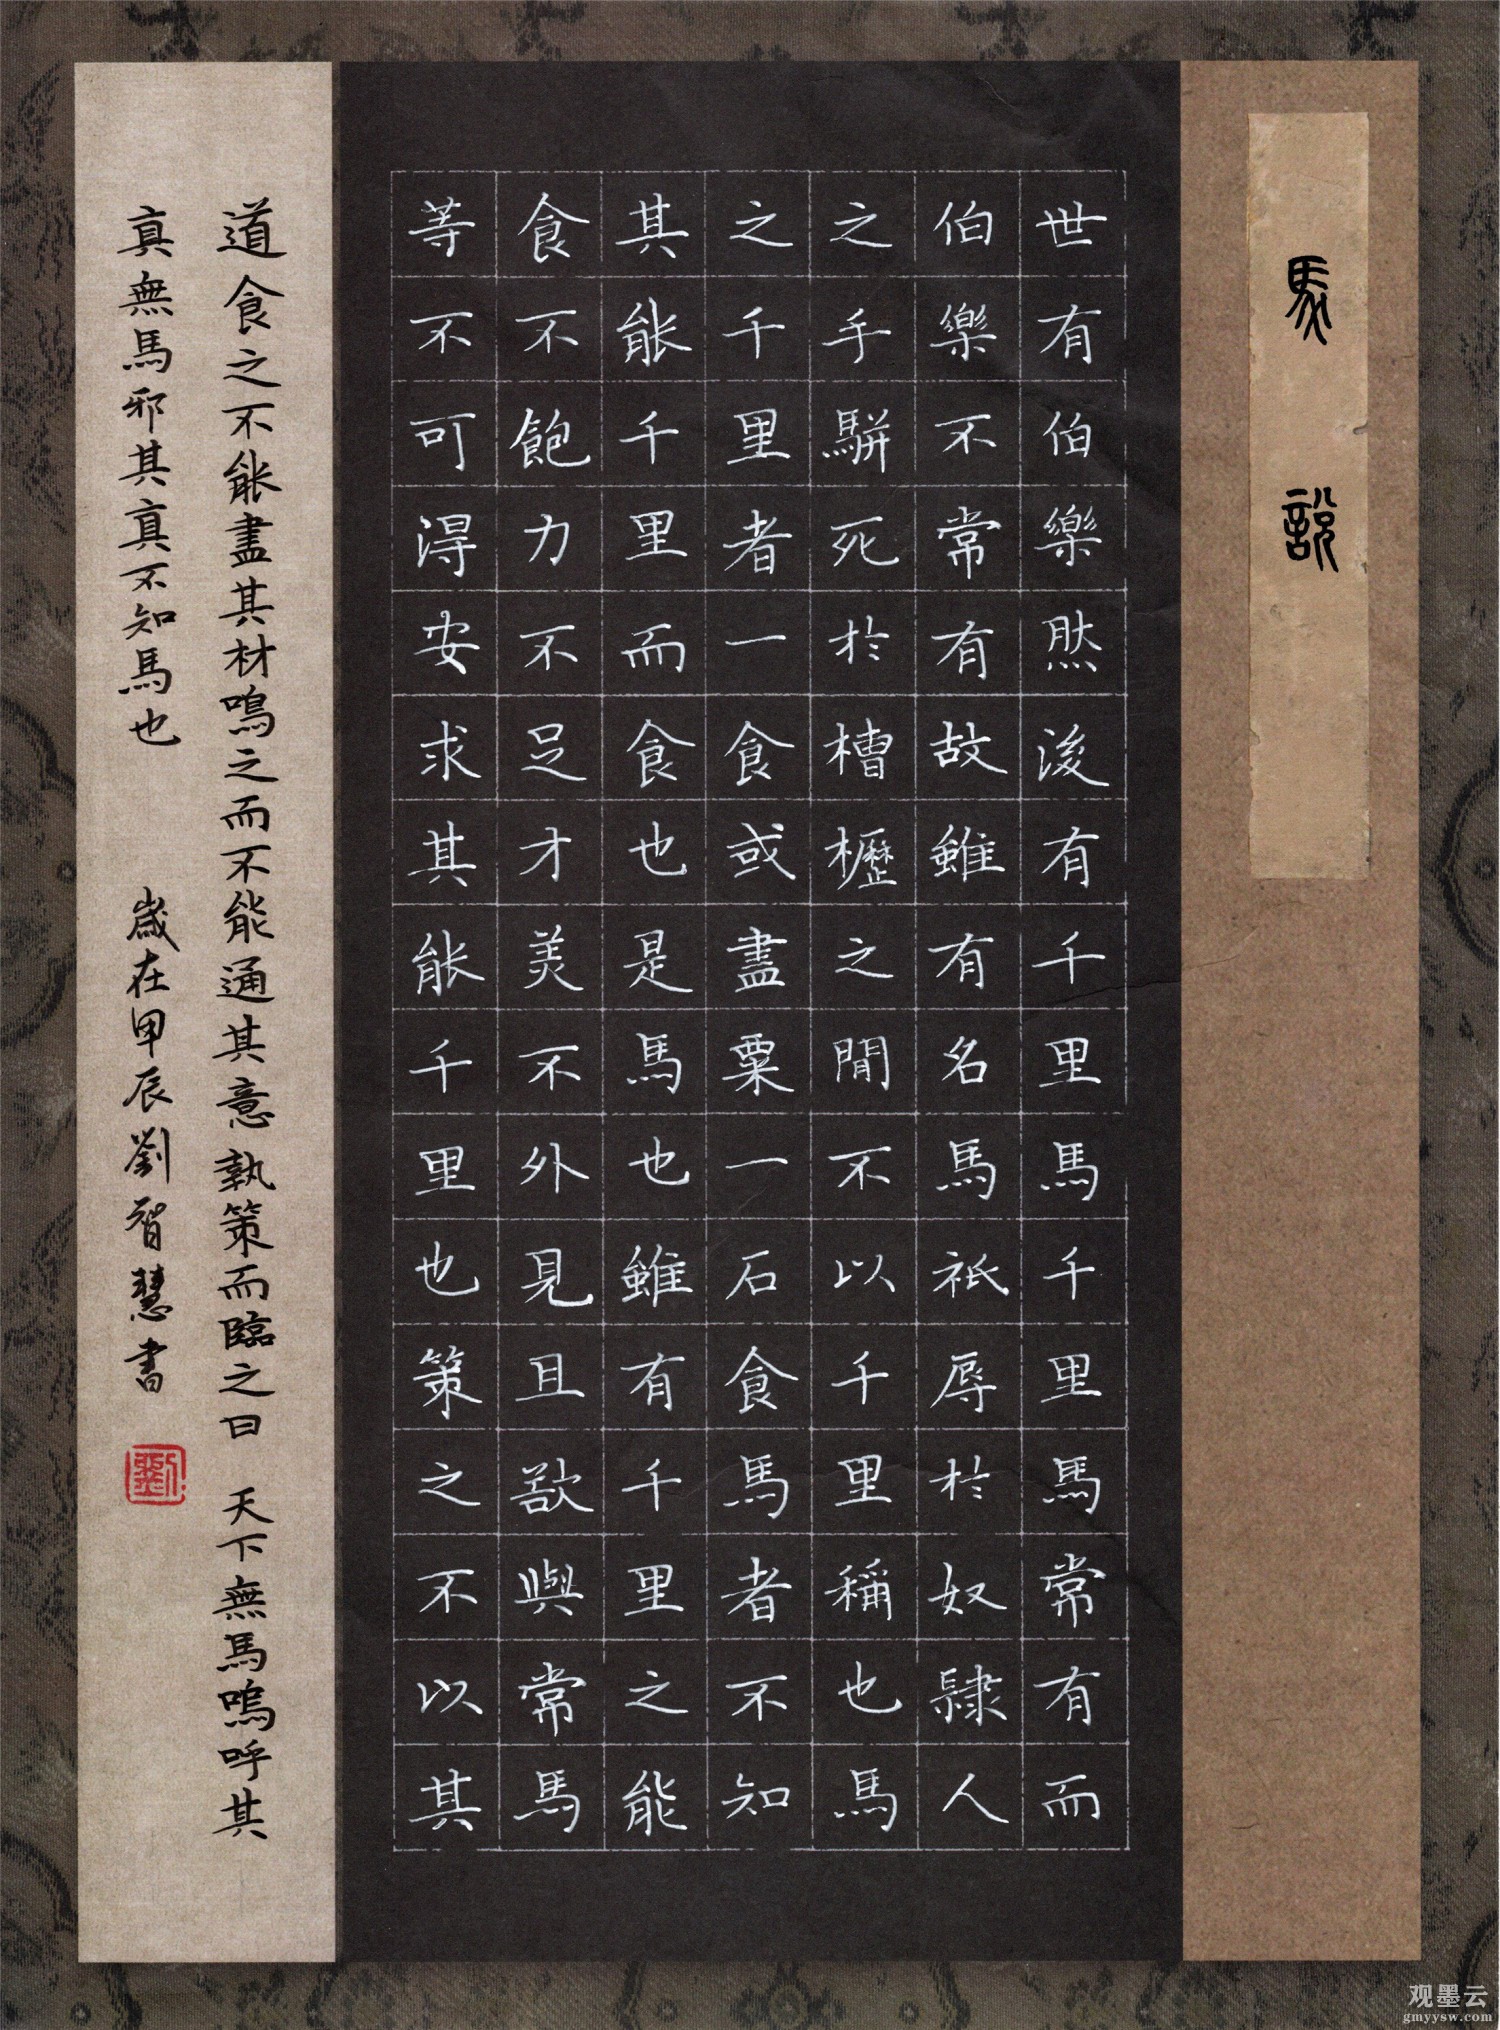 馬說
世有伯樂然後有千里馬千里馬常有而
伯樂不常有故雖有名馬祇辱於奴隸人
之手駢死於槽櫪之間不以千里稱也馬
之千里者一食或盡粟一石食馬者不知
其能千里而食也是馬也雖有千里之能
食不飽力不足才美不外見且欲與常馬
等不可得安求其能千里也策之不以其
道食之不能盡其材鳴之而不能通其意執策而臨之曰天下無馬嗚呼其
真無馬邪其真不知馬也 歲在甲辰劉智慧書
劉
观墨云
gmyysw.com